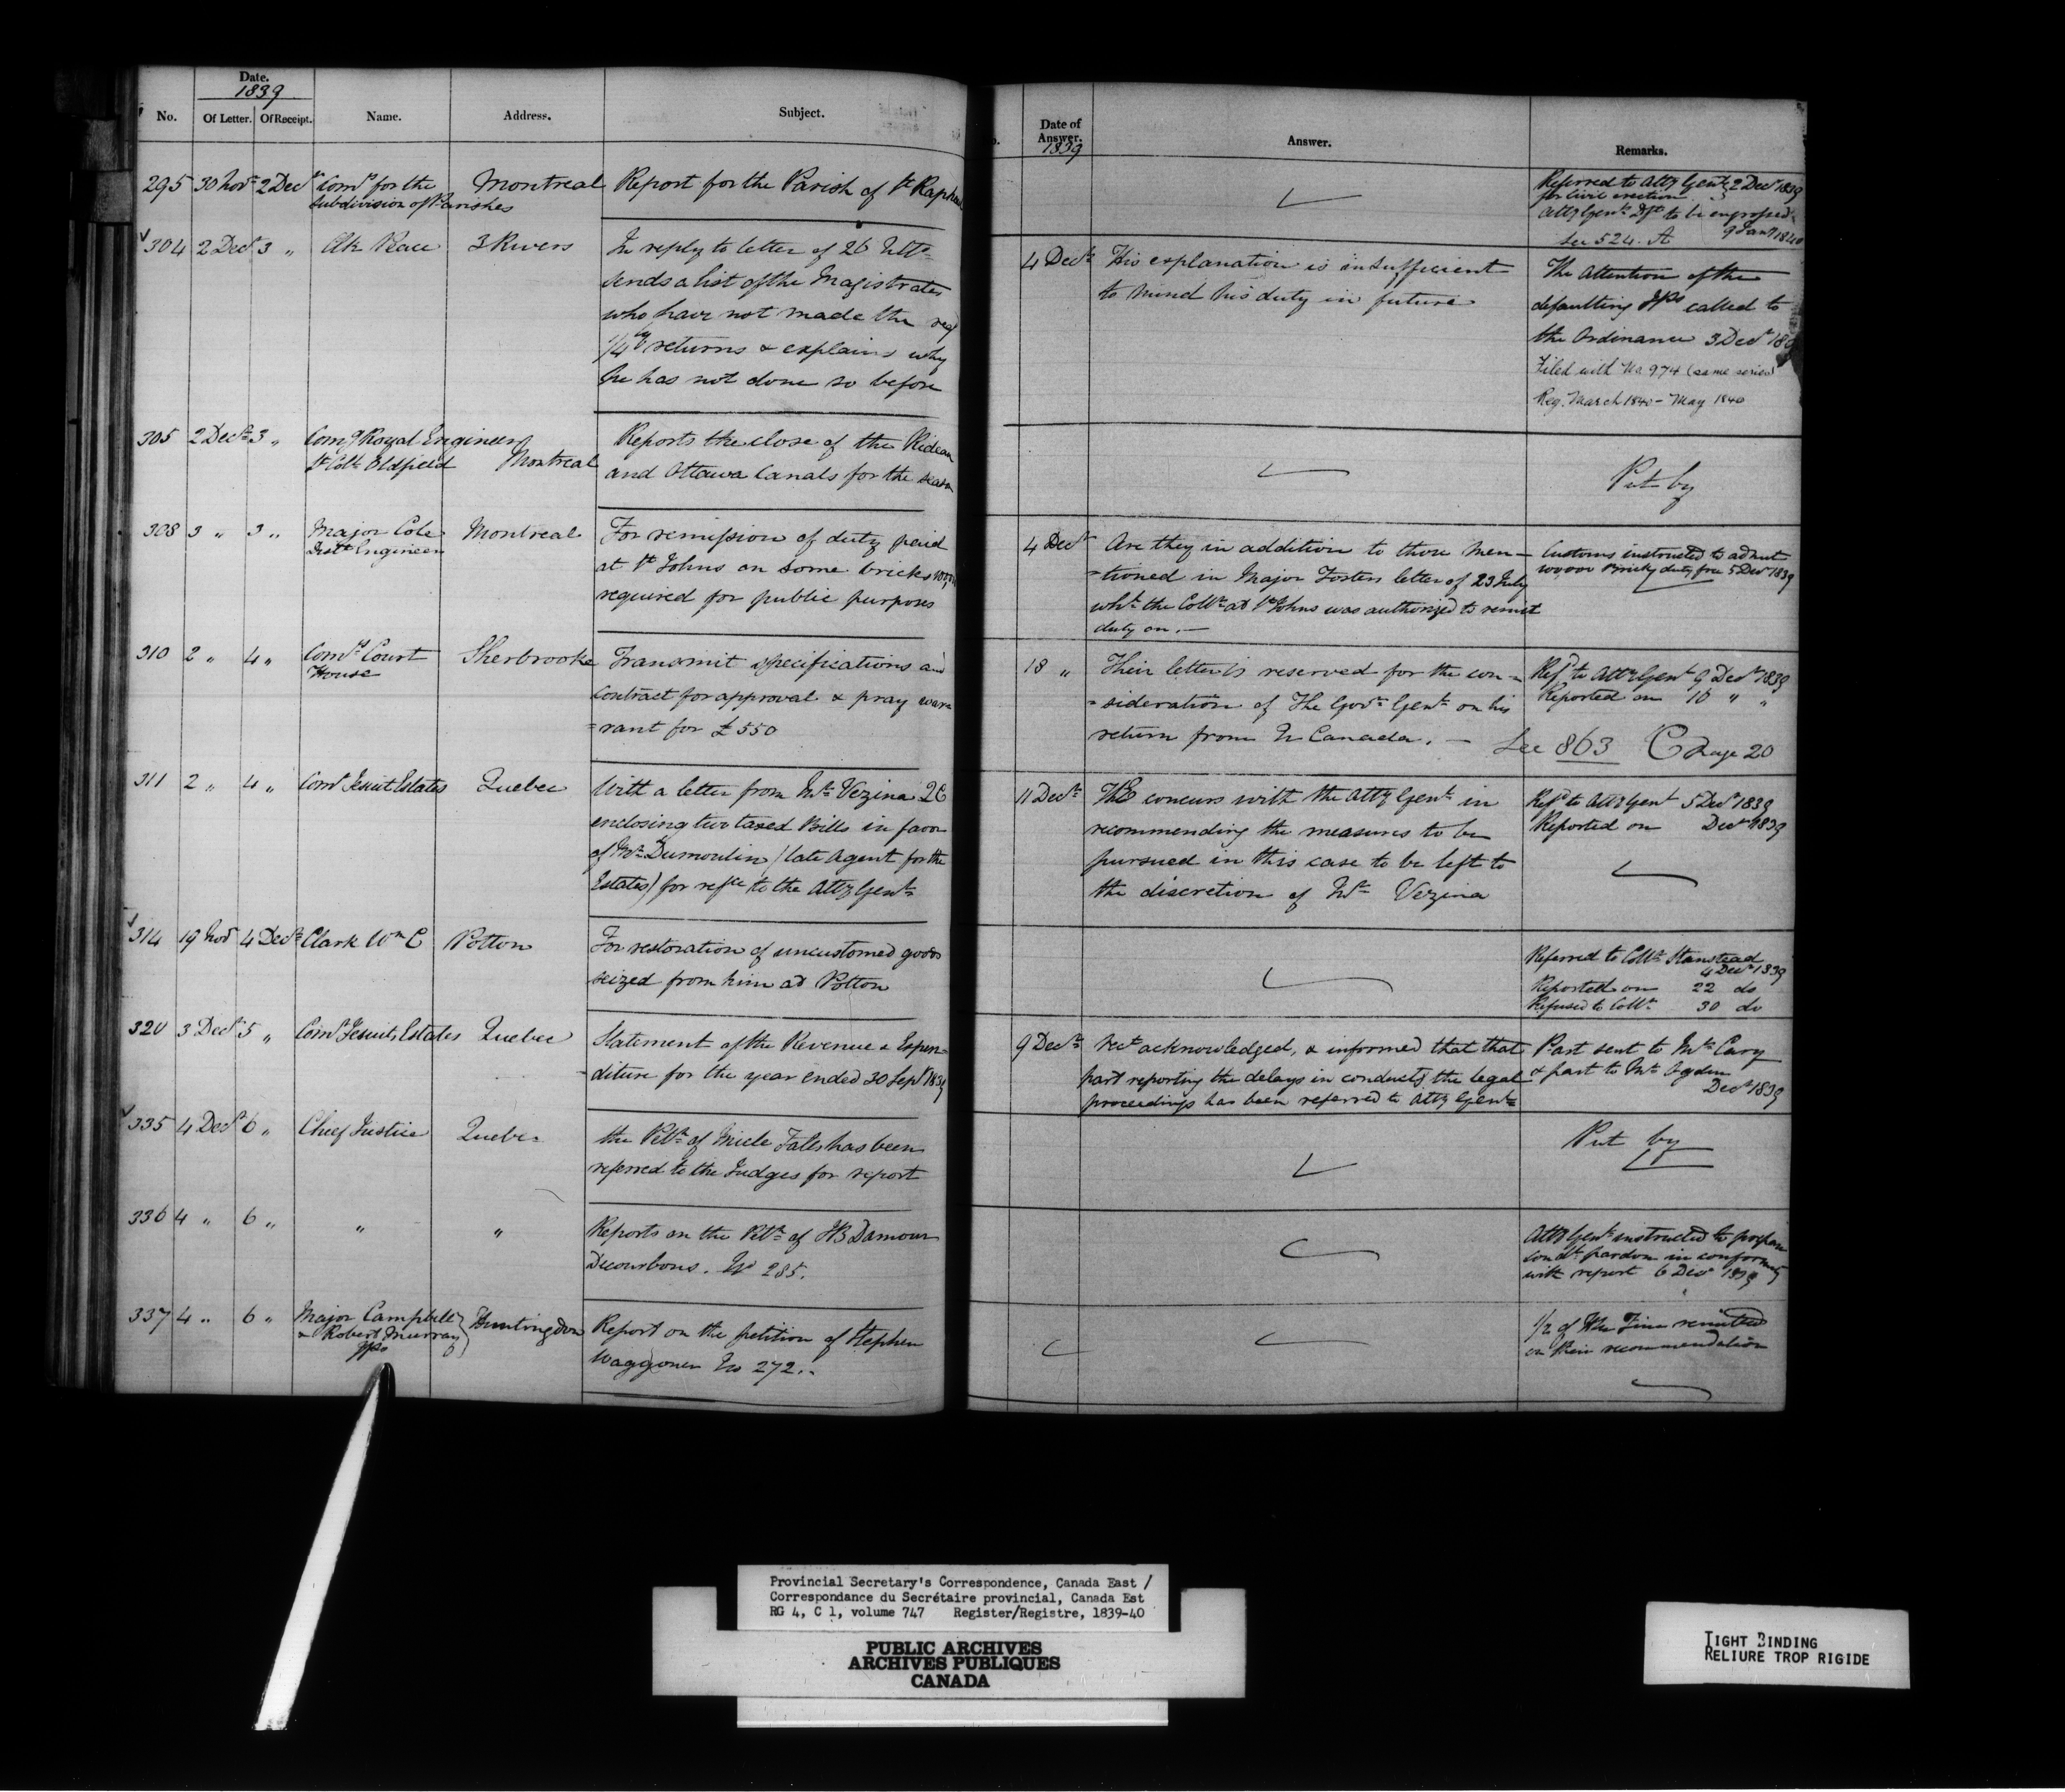 Date.
1839
No.
Of Letter.
Of Receipt.
Name.
Address.
Subject.
295 30 Novr 2 Decr Comrs for the Montreal Report for the Parish of St Raphael
subdivision of Parishes
304 2 Decr 3 „ 3 Rivers In reply to letter of 26 Ulto
sends a list of the Magistrates
who have not made the reqd
1/4ly returns & explains why
he has not done so before
305 2 Decr 3 „ Comg Royal Engineer Reports the close of the Rideau
Lt Coll Oldfield Montreal and Ottawa Canals for the season
308 3 „ 3 „ Major Cole Montreal For remission of duty paid
Distt Engineer at St Johns on some bricks
required for public purposes
310 2 „ 4 „ Comrs Court Sherbrooke Transmit specifications and
House contract for approval & pray war=
=rant for £550
311 2 „ 4 „ Comr Jesuit Estates Quebec With a letter from Mr Vezina QC
enclosing two taxed Bills in favor
of Mr Dumoulin (late Agent for the
Estates) for refce to the Atty Genl
314 19 Novr 4 Decr Clark Wm C Potton For restoration of uncustomed goods
seized from him at Potton
320 3 Decr 5 „ Comr Jesuits Estates Quebec Statement of the Revenue & Expen=
diture for the year ended 30 Sept 1839
335 4 Decr 6 „ Chief Justice Quebec the Petn of Miele Fales has been
referred to the Judges for report
336 4 „ 6 „ „ „ Reports on the Petn of JB Damour
Decourbons. No 285.
337 4 „ 6 „ Major Campbell Huntingdon Report on the petition of Stephen
& Robert Murray Waggoner No 272.
JPs
Date of
Answer.
1839
Answer.
Remarks.
Referred to Atty Genl 2 Decr 1839
for Civil erection
Atty Genl Dft to be engrossed
9 Jany 1840
See 524. A
4 Decr His explanation is insufficient The Attention of the
to mind his duty in future defaulting JPs called to
the Ordinance 3 Decr
Filed with No 974 (same series)
Reg. March 1840 - May 1840
Put by
4 Decr Are they in addition to those men= Customs instructed to admit
=tioned in Major Fosters letter of 23 July 100,000 Bricks duty free 5 Decr 1839
whh the Collr at St Johns was authorized to remit
duty on.—
18 „ Their letter is reserved for the con= Refd to Atty Genl 9 Decr 1839
=sideration of The Govr Genl on his Reported on 16 „ „
return from U Canada. — See 863 C Page 20
11 Decr HE concurs with the Atty Genl in Refd to Atty Genl 5 Decr 1839
recommending the measures to be Reported on Decr 1839
pursued in this case to be left to
the discretion of Mr Vezina
Referred to Collr Stanstead
4 Decr 1839
Reported on 22 do
Refused to Collr 30 do
9 Decr Rect acknowledged, & informed that that Part sent to Mr Cary
part reporting the delays in conductg the legal & part to Mr Ogden
proceedings has been referred to Atty Genl Decr 1839
Put by
Atty Genl instructed to prepare
condl pardon in conformity
with report 6 Decr 1839
1/2 of the Fine remitted
on their recommendation
Provincial Secretary's Correspondence, Canada East /
Correspondance du Secrétaire provincial, Canada Est
RG 4, C 1, volume 747 Register/Registre, 1839-40
PUBLIC ARCHIVES
ARCHIVES PUBLIQUES
CANADA
TIGHT BINDING
RELIURE TROP RIGIDE